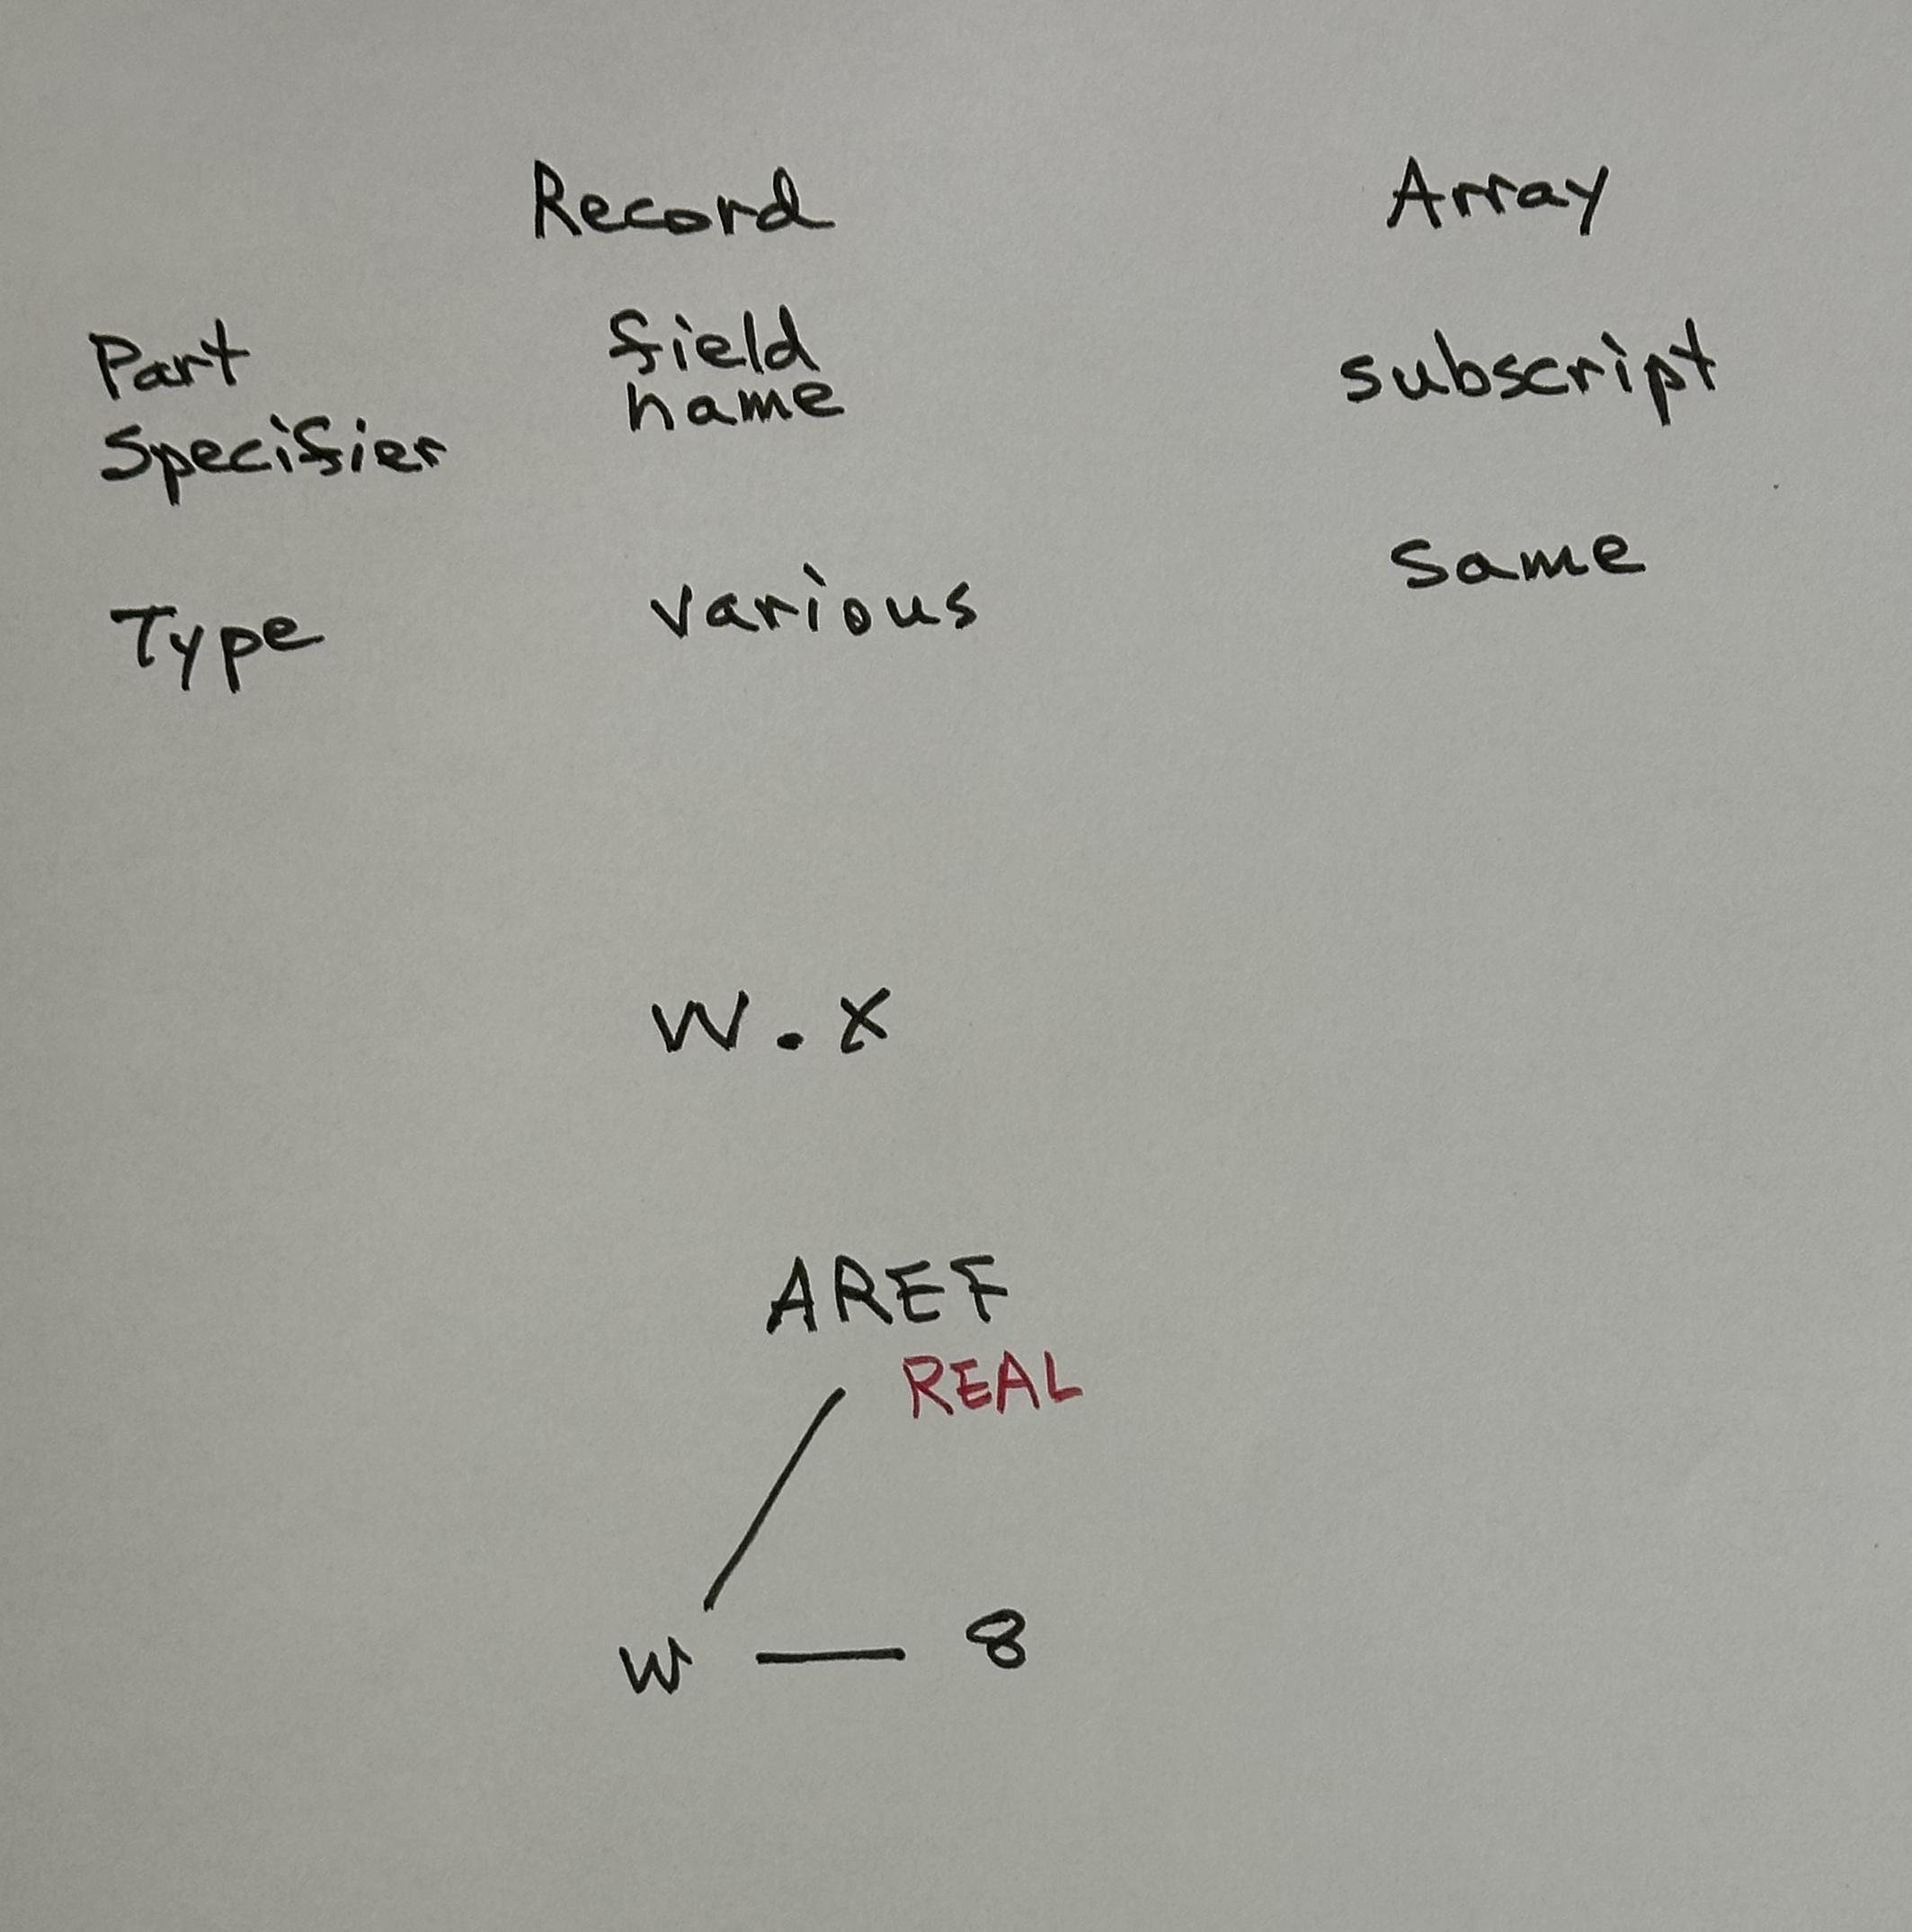 Record Array
Part field subscript
Specifier name
Type various same
W . x
AREF
REAL
W — 8